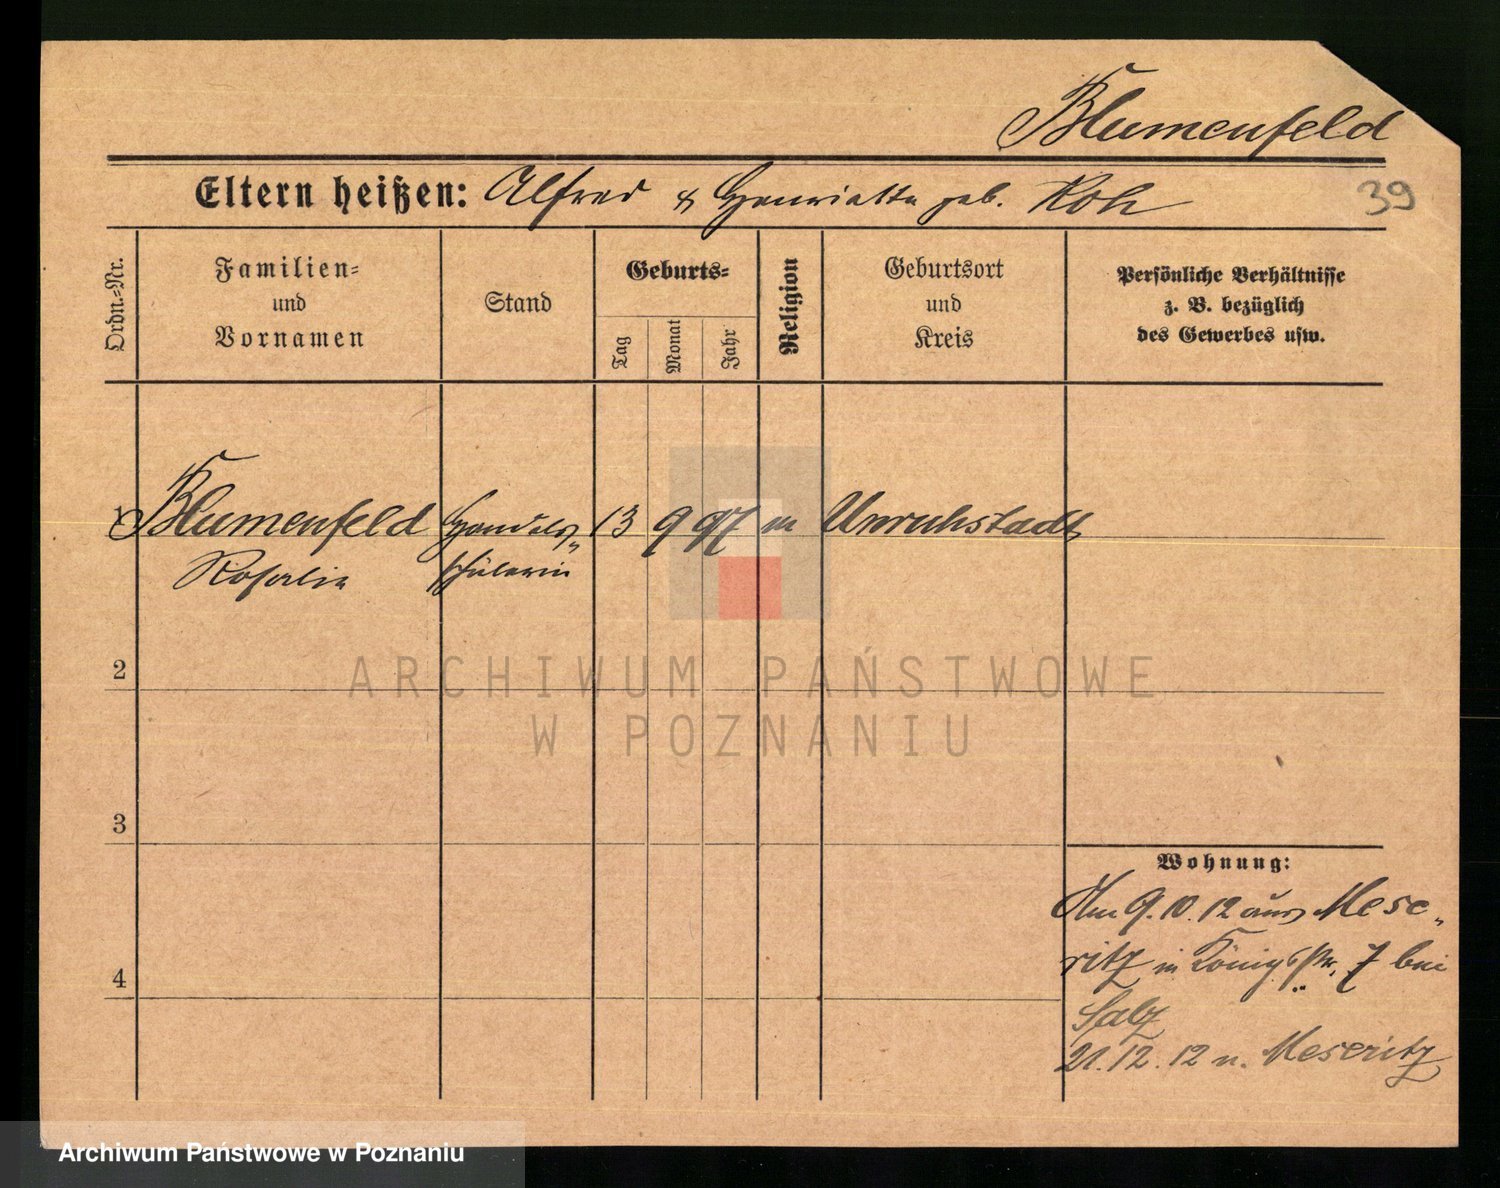 Blumenfeld
Eltern heißen: Alfred & Henriette geb. Roh
39
Ordn.-Nr.
Familien-
und
Vornamen
Stand
Geburts-
Tag
Monat
Jahr
Religion
Geburtsort
und
Kreis
Persönliche Verhältnisse
z. B. bezüglich
des Gewerbes usw.
1 Blumenfeld Handels- 13 9 97 m Unruhstadt
Rosalie schülerin
ARCHIWUM PAŃSTWOWE
W POZNANIU
2
3
4
Wohnung:
Am 9.10.12 aus Mese-
ritz in Königsstr. 7 bei
Salz
21.12.12 n. Meseritz
Archiwum Państwowe w Poznaniu